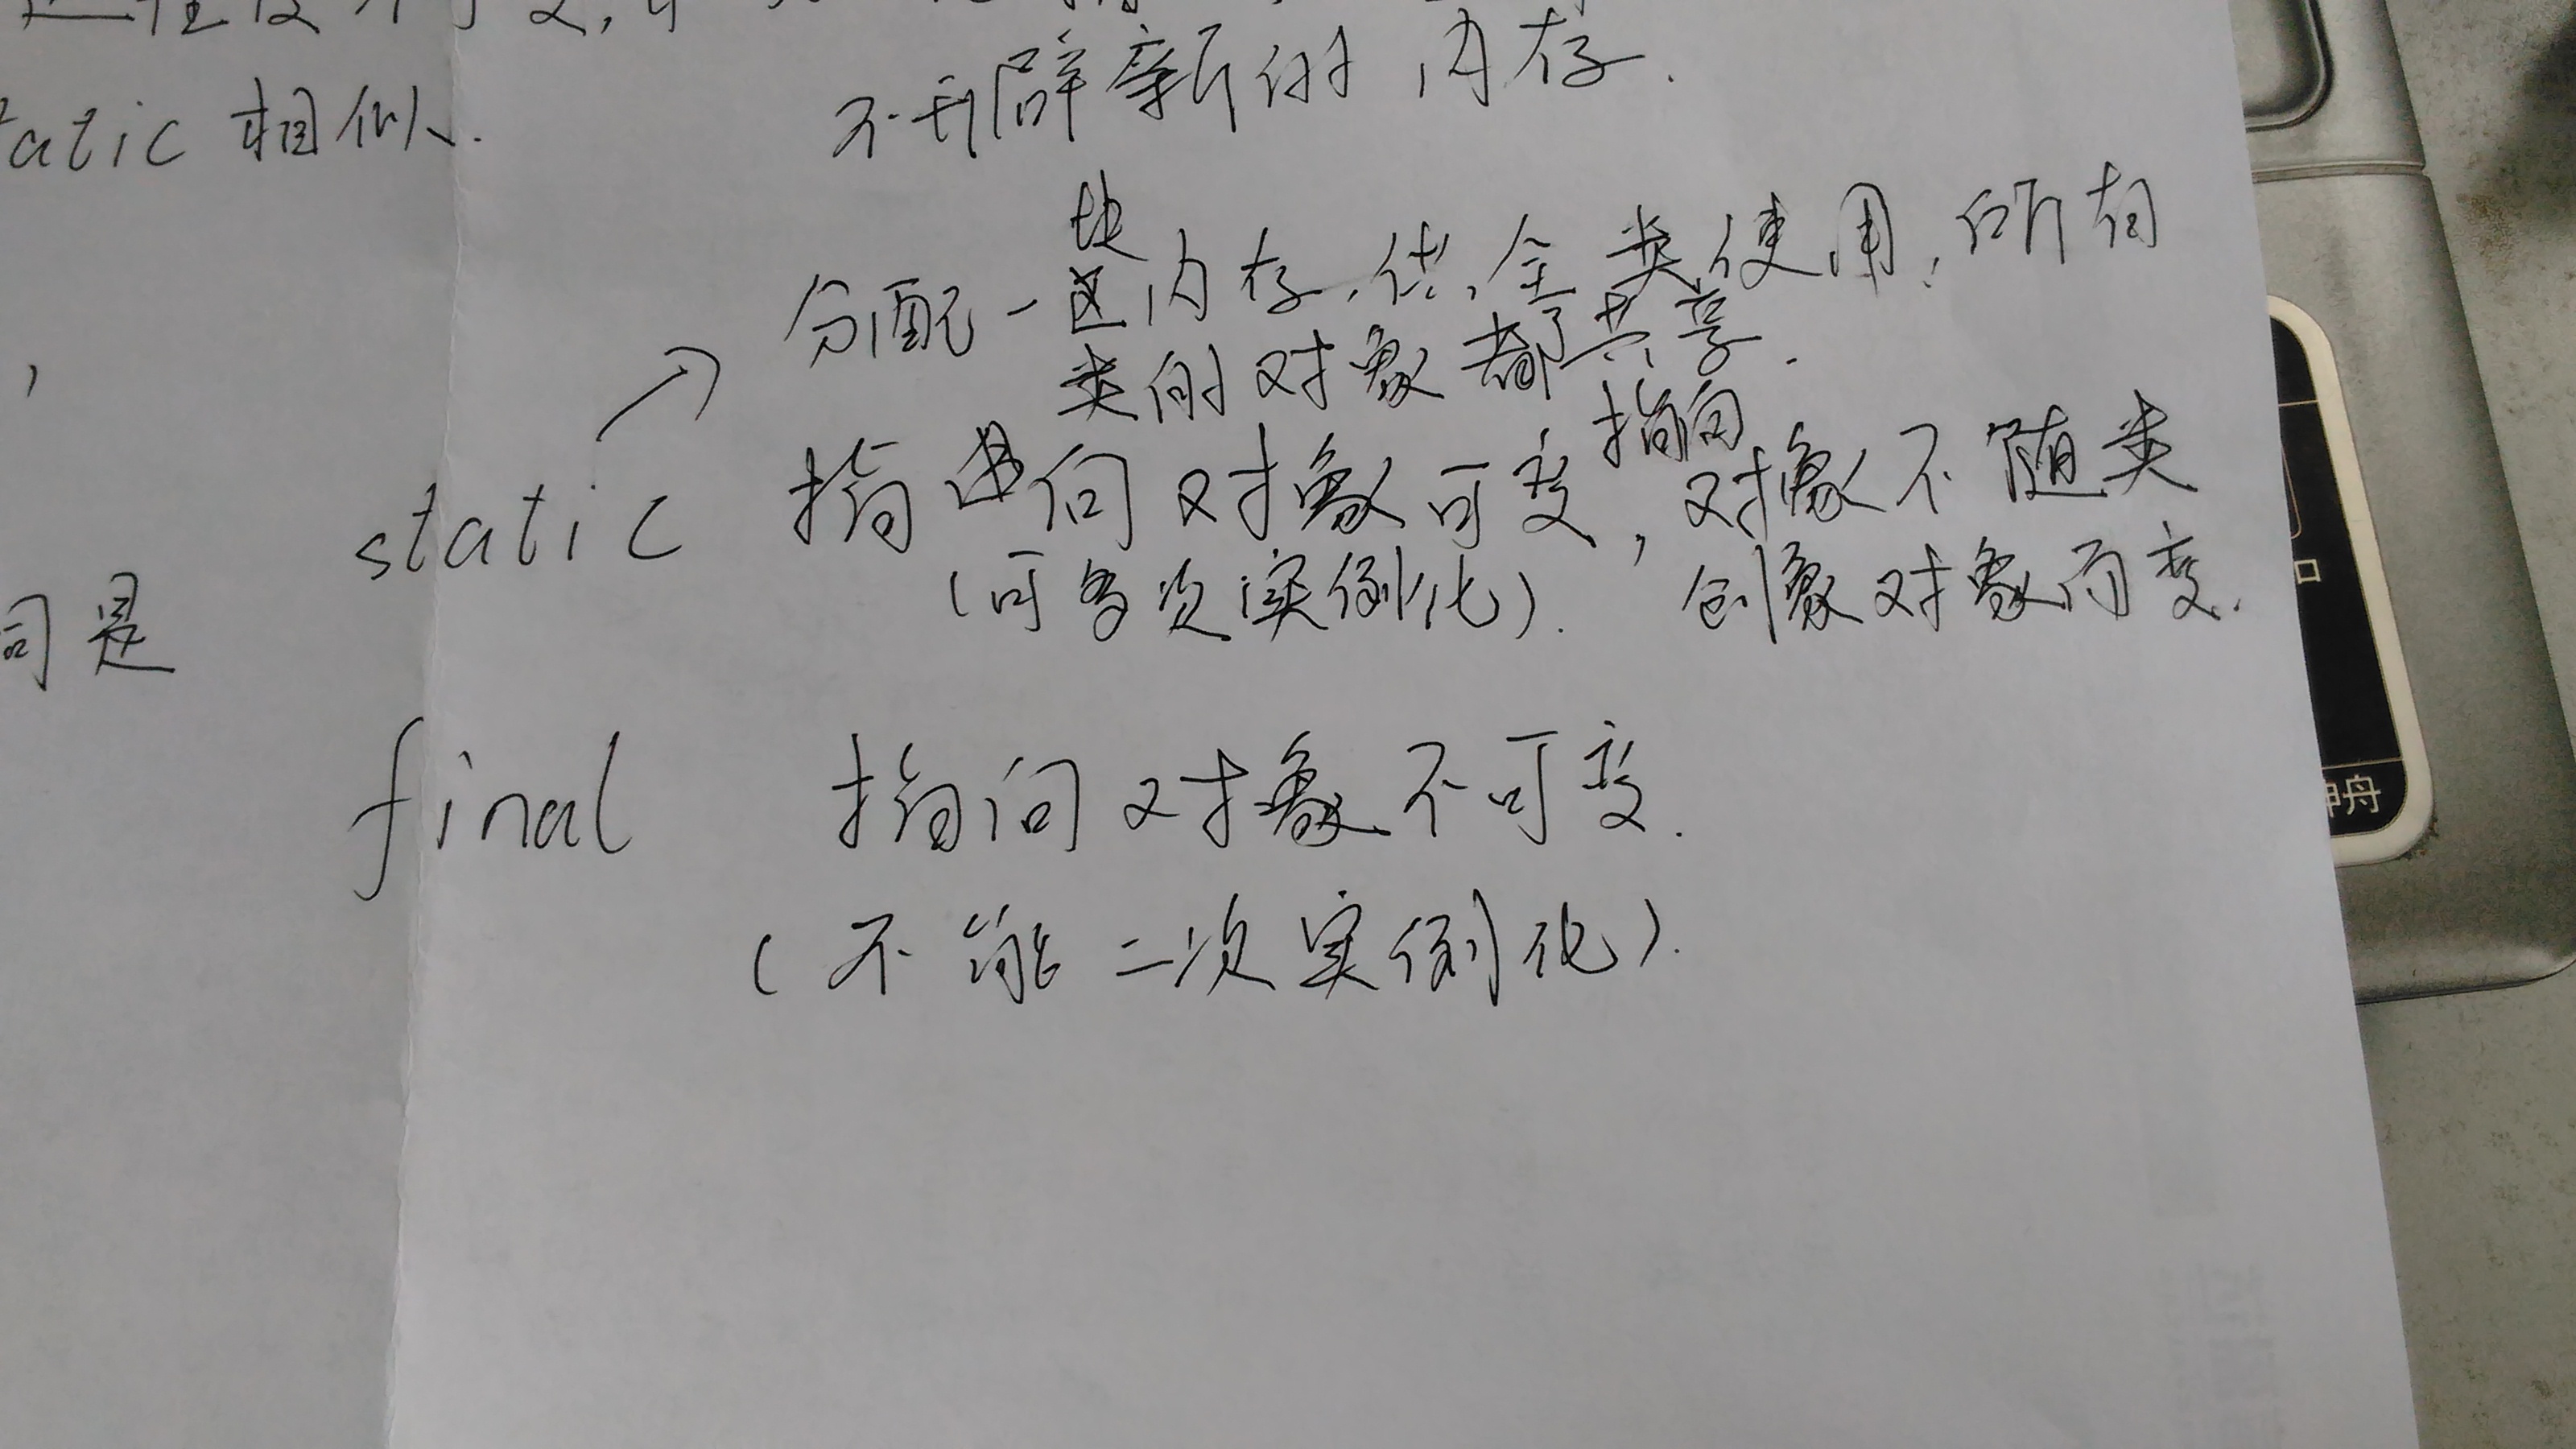 不开辟新的内存.
atic 相似.
块
分配一区内存,供全类使用,所有
类的对象都共享.
指向
static 指向对象可变,对象不随类
(可多次实例化). 创象对象而变.
司是
final 指向对象不可变.
(不能二次实例化).
神舟